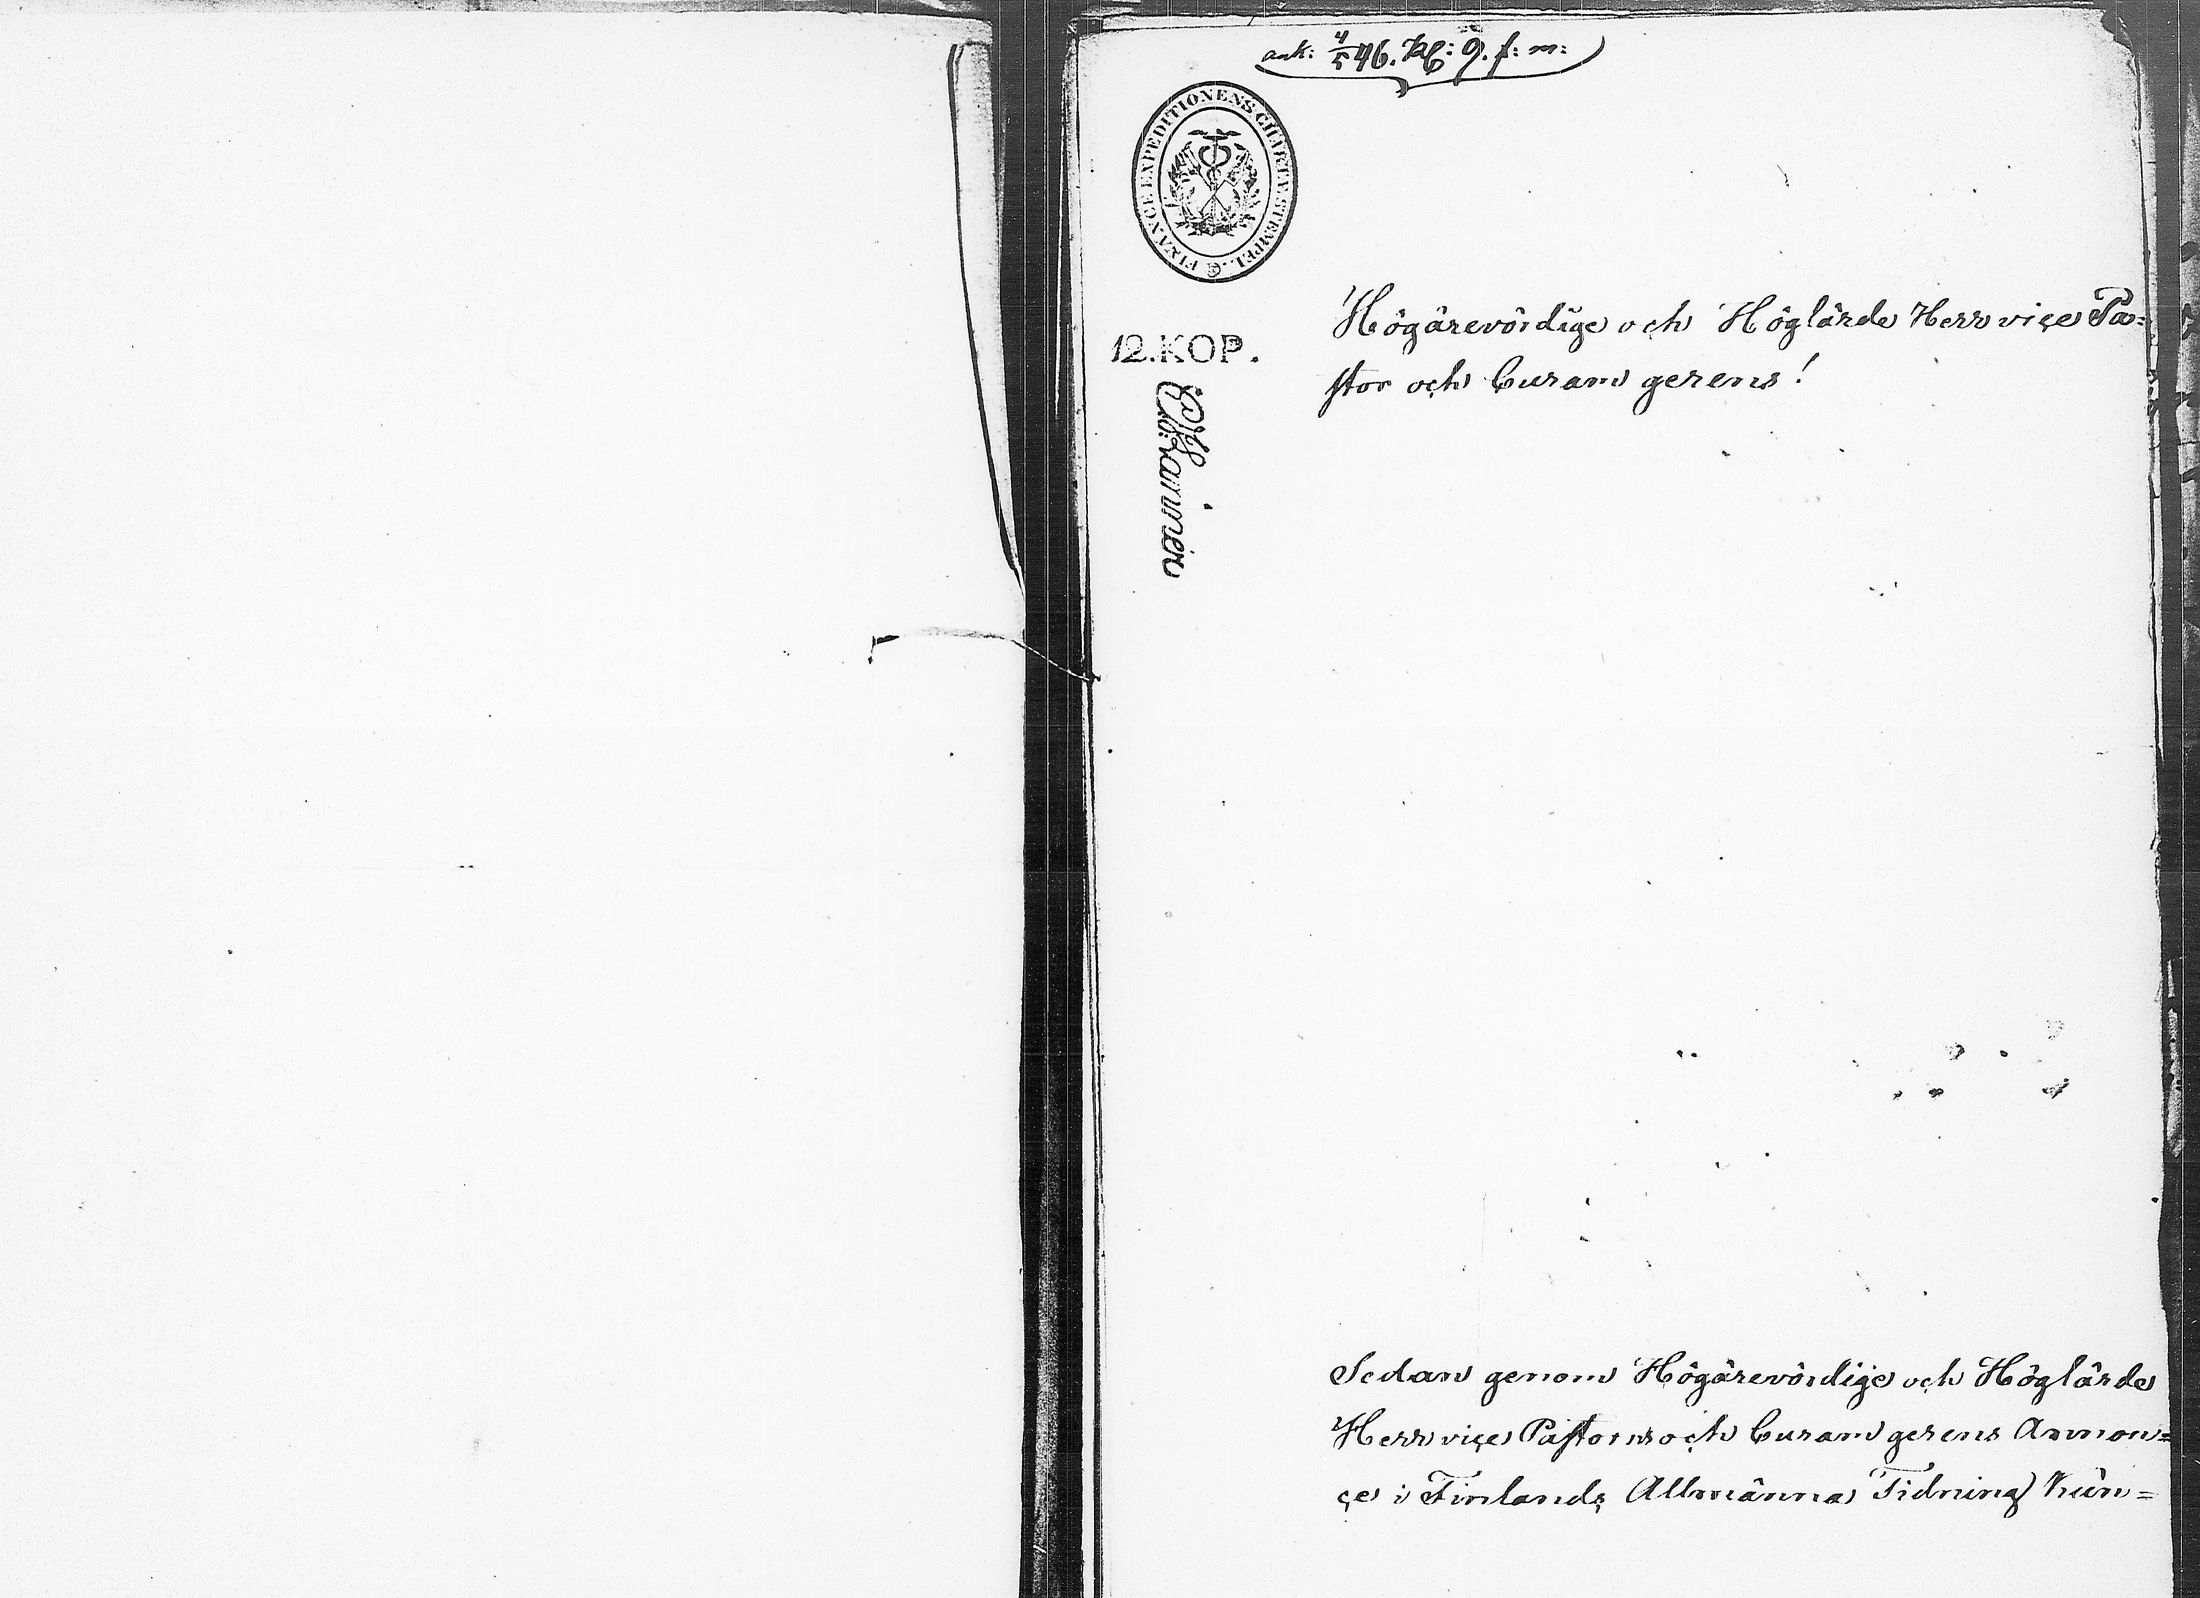 ank: 4/5 46. Kl: 9. f: m:
FINANCE EXPEDITIONENS CHARTÆ STEMPEL.
12. KOP.
Högärevördige och Höglärde Herr viçe Pa=
stor och Curam gerens!
Sedan genom Högärevördige och Höglärde
Herr viçe Pastorns och Curam gerens Annon=
çe i Finlands Allmänna Tidning kun=